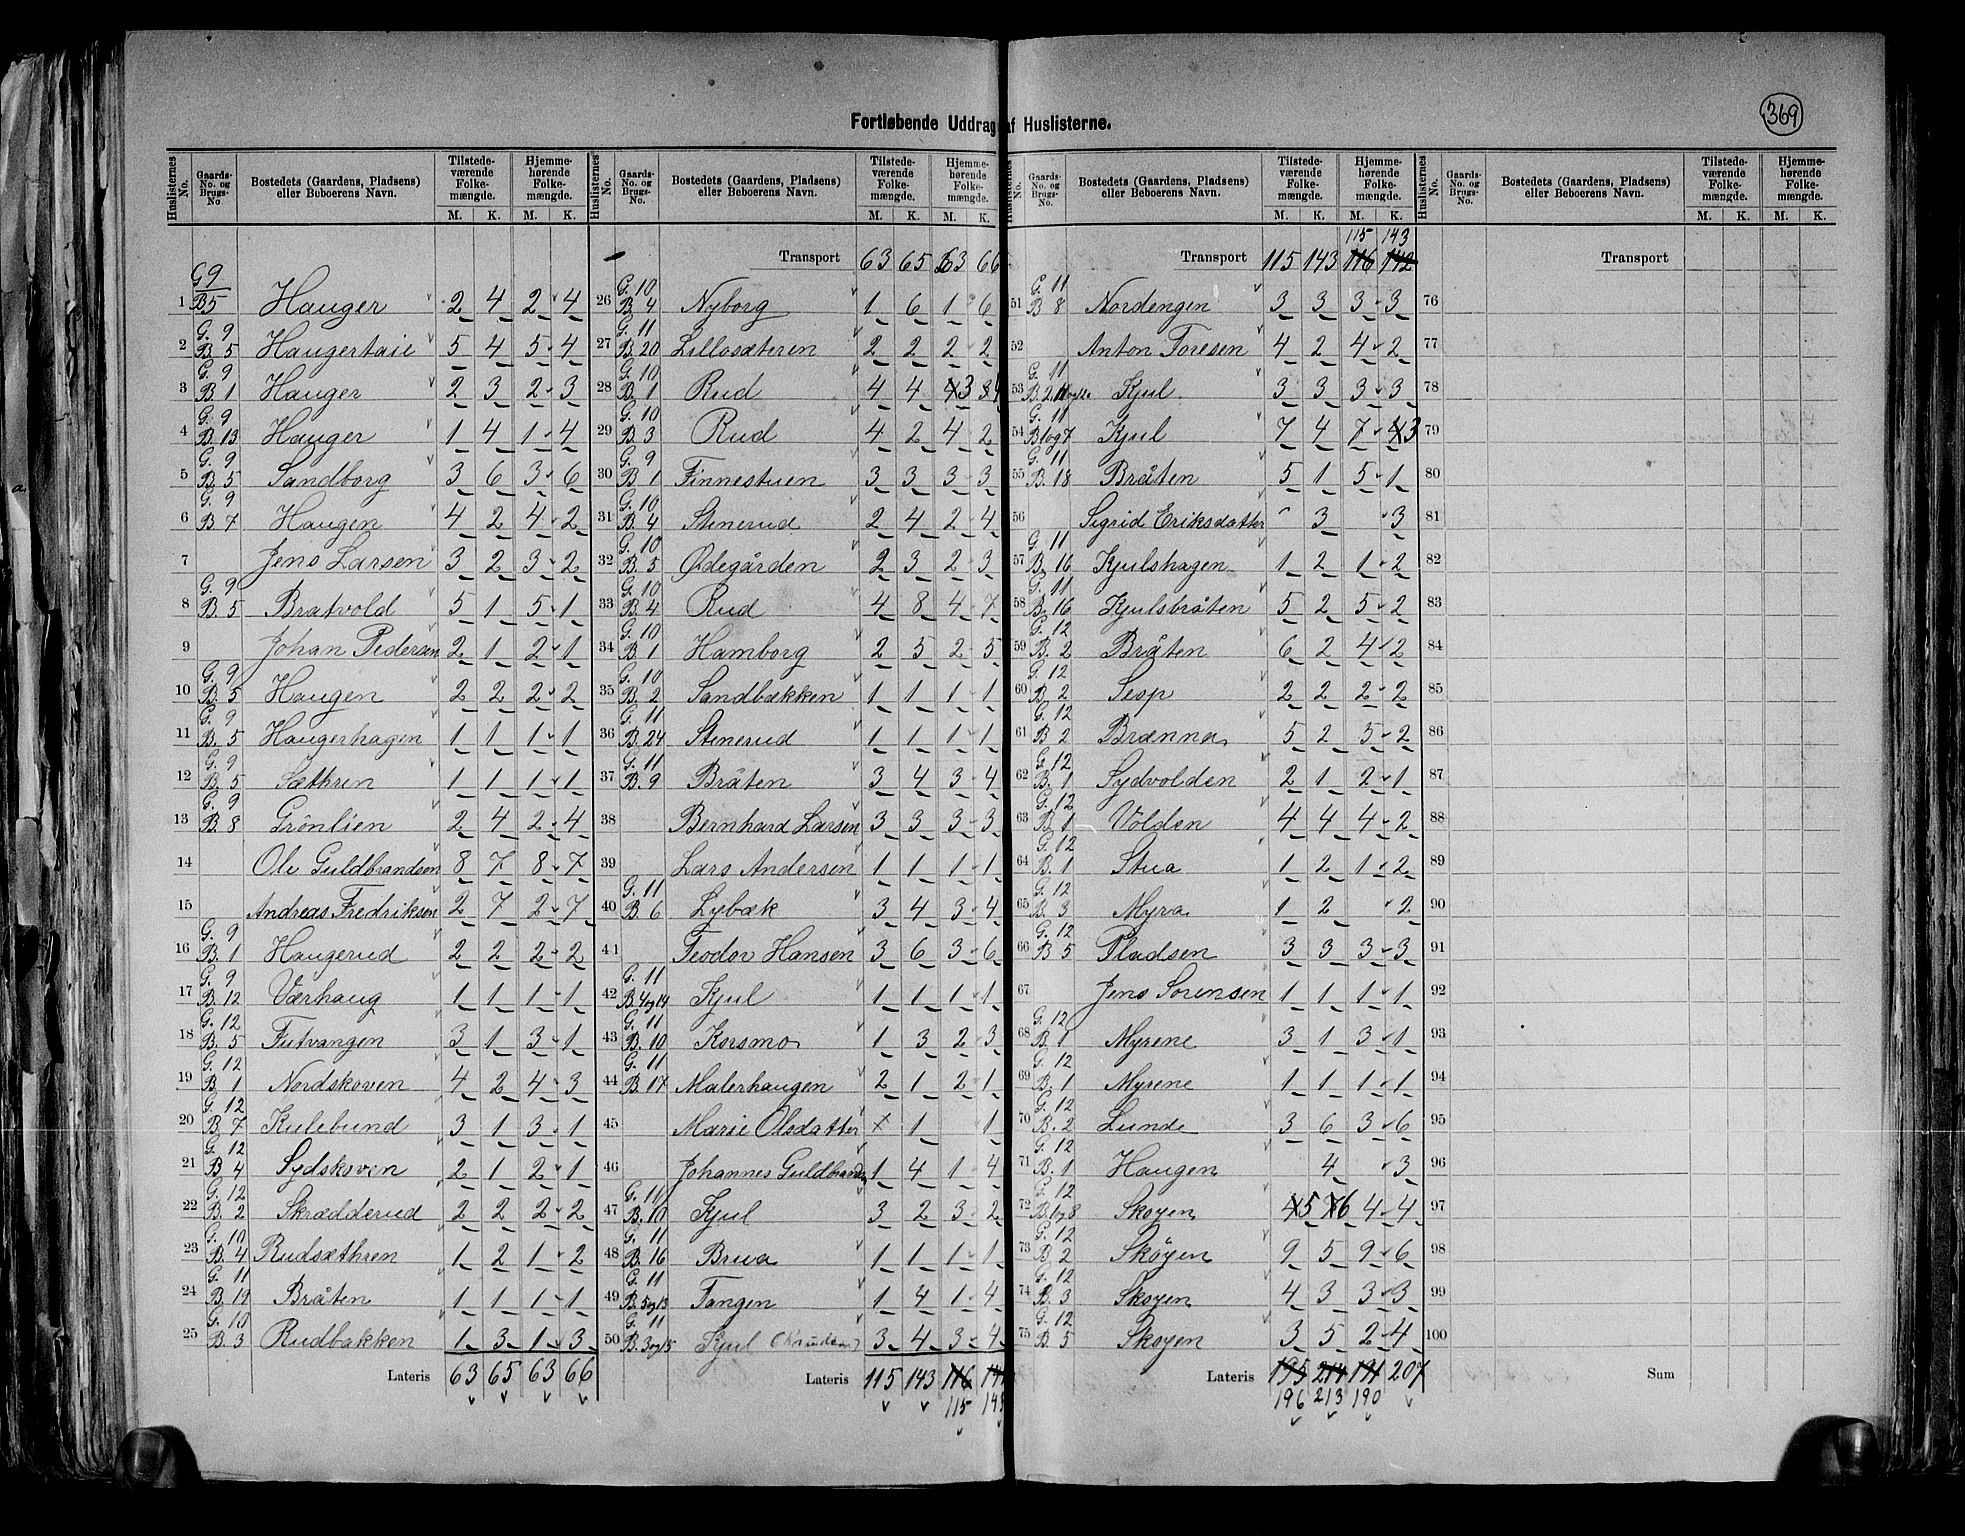 369
Fortløbende Uddrag af Huslisterne.
Huslisternes No. | Gaards-No. og Brugs-No. | Bostedets (Gaardens, Pladsens) eller Beboerens Navn. | Tilstedeværende Folkemængde. M. K. | Hjemmehørende Folkemængde. M. K.
1 G 9 B 5 Hauger 2 4 2 4
2 G. 9 B. 5 Haugertaie 5 4 5 4
3 G. 9 B. 1 Hauger 2 3 2 3
4 G. 9 B. 13 Hauger 1 4 1 4
5 G. 9 B. 5 Sandborg 3 6 3 6
6 G. 9 B 7 Haugen 4 2 4 2
7 Jens Larsen 3 2 3 2
8 G. 9 B. 5 Bratvold 5 1 5 1
9 Johan Pedersen 2 1 2 1
10 G. 9 B. 5 Haugen 2 2 2 2
11 G. 9 B. 5 Haugerhagen 1 1 1 1
12 G. 9 B. 5 Sæthren 1 1 1 1
13 G. 9 B. 8 Grönlien 2 4 2 4
14 Ole Guldbrandsen 8 7 8 7
15 Andreas Fredriksen 2 7 2 7
16 G. 9 B. 1 Haugerud 2 2 2 2
17 G. 9 B. 12 Værhaug 1 1 1 1
18 G. 12 B. 5 Futvangen 3 1 3 1
19 G. 12 B 1 Nordskoven 4 2 4 3
20 G. 12 B. 7 Kulebund 3 1 3 1
21 G. 12 B 4 Sydskoven 2 1 2 1
22 G. 12 B. 2 Skrædderud 2 2 2 2
23 G. 10 B. 4 Rudsæthren 1 2 1 2
24 G. 11 B. Bråten 1 1 1 1
25 G. 10 B. 3 Rudbakken 1 3 1 3
Lateris 63 65 63 66
Huslisternes No. | Gaards-No. og Brugs-No. | Bostedets (Gaardens, Pladsens) eller Beboerens Navn. | Tilstedeværende Folkemængde. M. K. | Hjemmehørende Folkemængde. M. K.
Transport 63 65 63 66
26 G. 10 B. 4 Nyborg 1 6 1 6
27 G. 11 B. 20 Lillosæteren 2 2 2 2
28 G. 10 B. 1 Rud 4 4 4 3
29 G. 10 B. 3 Rud 4 2 4 2
30 G. 9 B 1 Finnestuen 3 3 3 3
31 G. 10 B. 4 Stenerud 2 4 2 4
32 G. 10 B. 5 Ødegården 2 3 2 3
33 G. 10 B. 4 Rud 4 8 4 7
34 G. 10 B 1 Hamborg 2 5 2 5
35 G. 10 B. 2 Sandbækken 1 1 1 1
36 G. 11 B. 24 Stenerud 1 1 1 1
37 G. 11 B. 9 Bråten 3 4 3 4
38 Bernhard Larsen 3 3 3 3
39 Lars Andersen 1 1 1 1
40 G. 11 B. 6 Lybæk 3 4 3 4
41 Teodor Hansen 3 6 3 6
42 G. 11 B. 4og14 Kjul 1 1 1 1
43 G. 11 B. 10 Korsmo 1 3 2 3
44 G. 11 B. 17 Malerhaugen 2 1 2 1
45 Marie Olsdatter x 1 1
46 Johannes Guldbrandsen 1 4 1 4
47 G. 11 B. 10 Kjul 3 2 3 2
48 G. 11 B. 16 Brua 1 1 1 1
49 G. 11 B. 5og13 Tangen 1 4 1 4
50 G. 11 B. 3og15 Kjul 3 4 3 4
Lateris 115 143 116
115 143
Huslisternes No. | Gaards-No. og Brugs-No. | Bostedets (Gaardens, Pladsens) eller Beboerens Navn. | Tilstedeværende Folkemængde. M. K. | Hjemmehørende Folkemængde. M. K.
115 143
Transport 115 143 116 142
51 G. 11 B 8 Nordengen 3 3 3 3
52 Anton Toresen 4 2 4 2
53 G. 11 Kjul 3 3 3 3
54 G. 11 B1og7 Kjul 7 4 7 4 3
55 G. 11 B. 18 Bråten 5 1 5 1
56 Sigrid Eriksdatter 3 3
57 G. 11 B. 16 Kjulshagen 1 2 1 2
58 G. 11 B. 16 Kjulsbråten 5 2 5 2
59 G. 12 B. 2 Bråten 6 2 4 2
60 G. 12 B 2 Sesp 2 2 2 2
61 G. 12 B 2 Brænna 5 2 5 2
62 G. 12 B. 1 Sydvolden 2 1 2 1
63 G. 12 B. 1 Volden 4 4 4 2
64 G. 12 B. 1 Stua 1 2 1 2
65 G. 12 B. 3 Myra 1 2 2
66 G. 12 B 5 Pladsen 3 3 3 3
67 Jens Sorensen 1 1 1 1
68 G. 12 B 1 Myrene 3 1 3 1
69 G. 12 B. 1 Myrene 1 1 1 1
70 G. 12 B. 2 Lunde 3 6 3 6
71 G. 12 B. 1 Haugen 4 3
72 G. 12 B. 1og8 Skoyen 4 5 7 6 4 4
73 G. 12 B 2 Sköyen 9 5 9 6
74 G. 12 B. 3 Skoyen 4 3 3 3
75 G. 12 B. 5 Skoyen 3 5 2 4
Lateris 195 214 191 207
196 213 190
Huslisternes No. | Gaards-No. og Brugs-No. | Bostedets (Gaardens, Pladsens) eller Beboerens Navn. | Tilstedeværende Folkemængde. M. K. | Hjemmehørende Folkemængde. M. K.
Transport
76
77
78
79
80
81
82
83
84
85
86
87
88
89
90
91
92
93
94
95
96
97
98
99
100
Sum